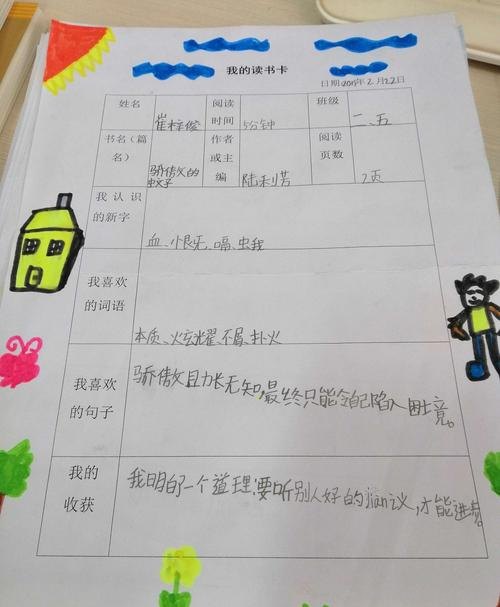 我的读书卡
日期2015年2月22日
姓名 崔梓俊 阅读时间 5分钟 班级 二、五
书名(篇名) 骄傲的蚊子 作者或主编 陆利芳 阅读页数 2页
我认识的新字 血、恨、嗝、蛾
我喜欢的词语 本质、炫耀、不屑、扑火
我喜欢的句子 骄傲且力长无知,最终只能令自己陷入困境。
我的收获 我明白了一个道理:要听别人好的jian议,才能进步。